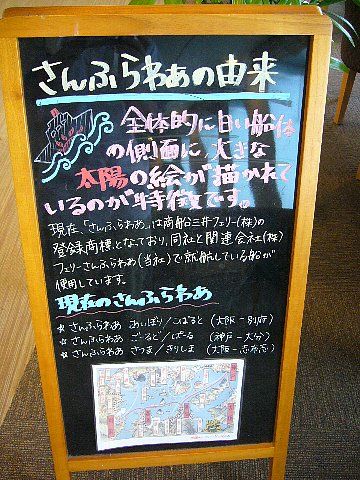 さんふらわあの由来
全体的に白い船体
の側面に、大きな
太陽の絵が描かれて
いるのが特徴です。
現在、「さんふらわあ」は商船三井フェリー(株)の
登録商標となっており、同社と関連会社(株)
フェリーさんふらわあ(当社)で就航している船が
使用しています。
現在のさんふらわあ
★さんふらわあ あいぼり/こばると (大阪-別府)
★さんふらわあ ごーるど/ぱーる (神戸-大分)
★さんふらわあ さつま/きりしま (大阪-志布志)